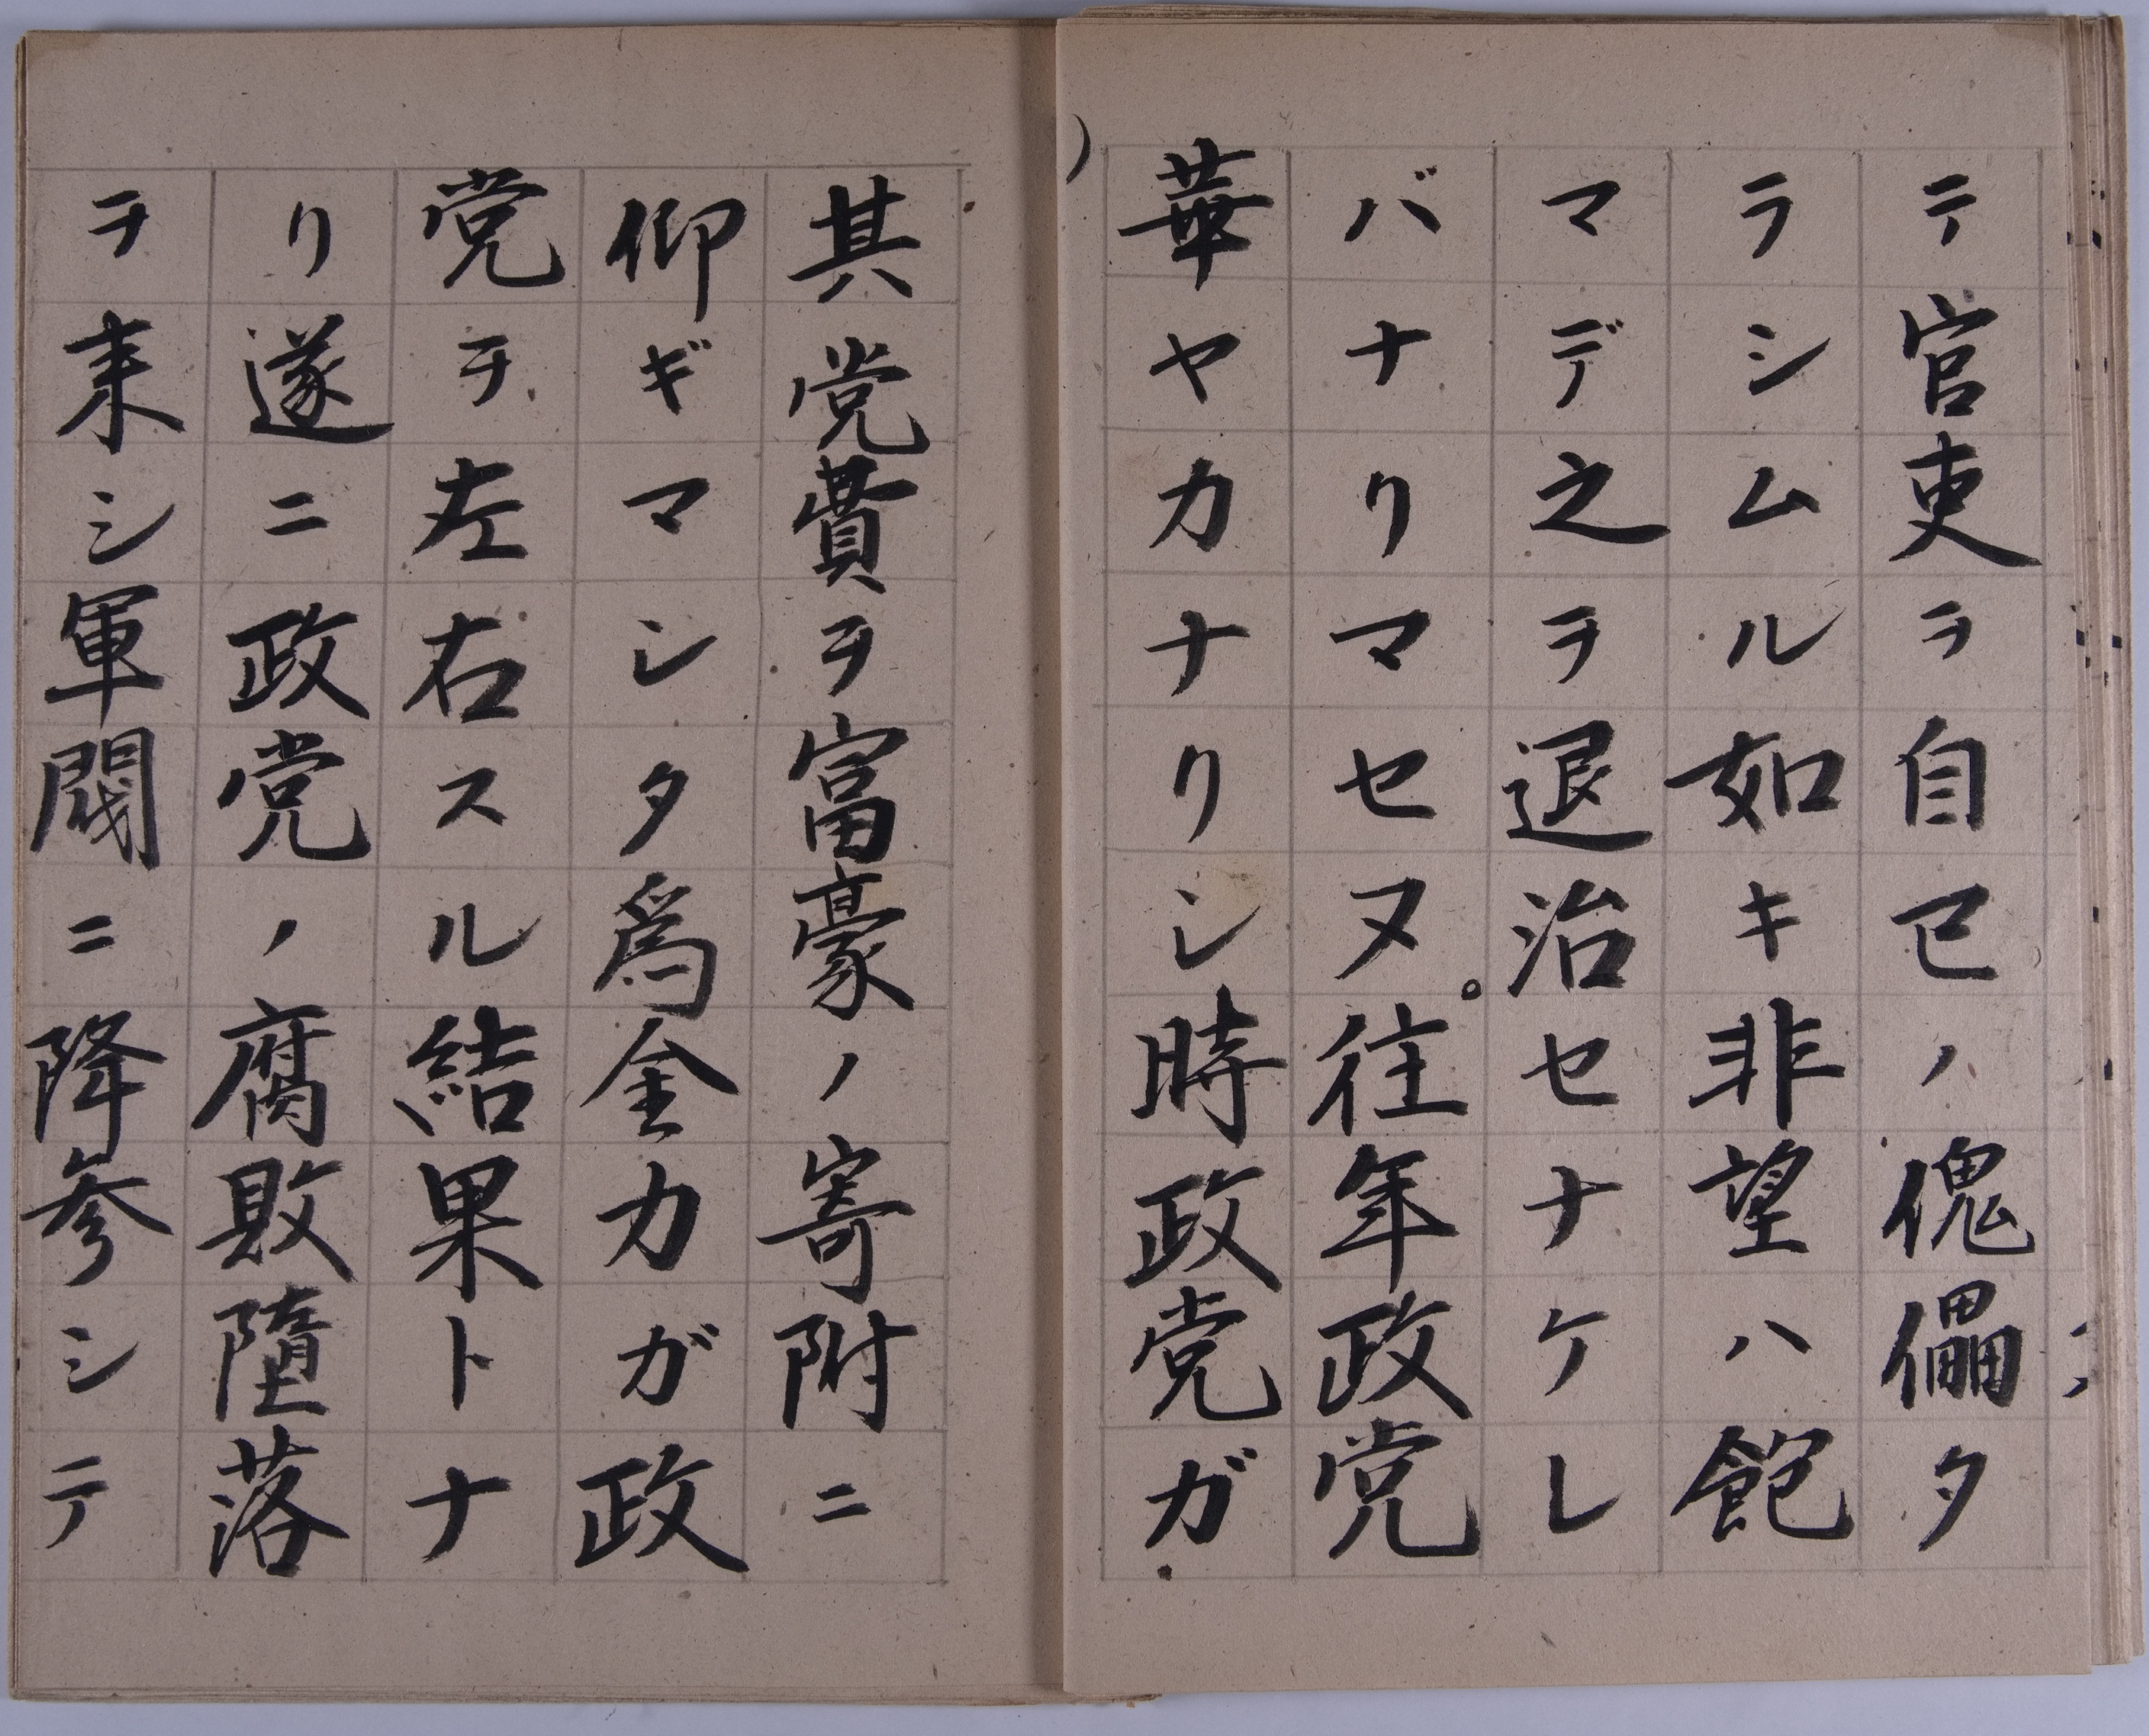 テ官吏ヲ自己ノ傀儡タ
ラシムル如キ非望ハ飽
マデ之ヲ退治セナケレ
バナリマセヌ。往年政党
華ヤカナリシ時政党ガ
其党費ヲ富豪ノ寄附ニ
仰ギマシタ爲金力ガ政
党ヲ左右スル結果トナ
リ遂ニ政党ノ腐敗墮落
ヲ来シ軍閥ニ降参シテ